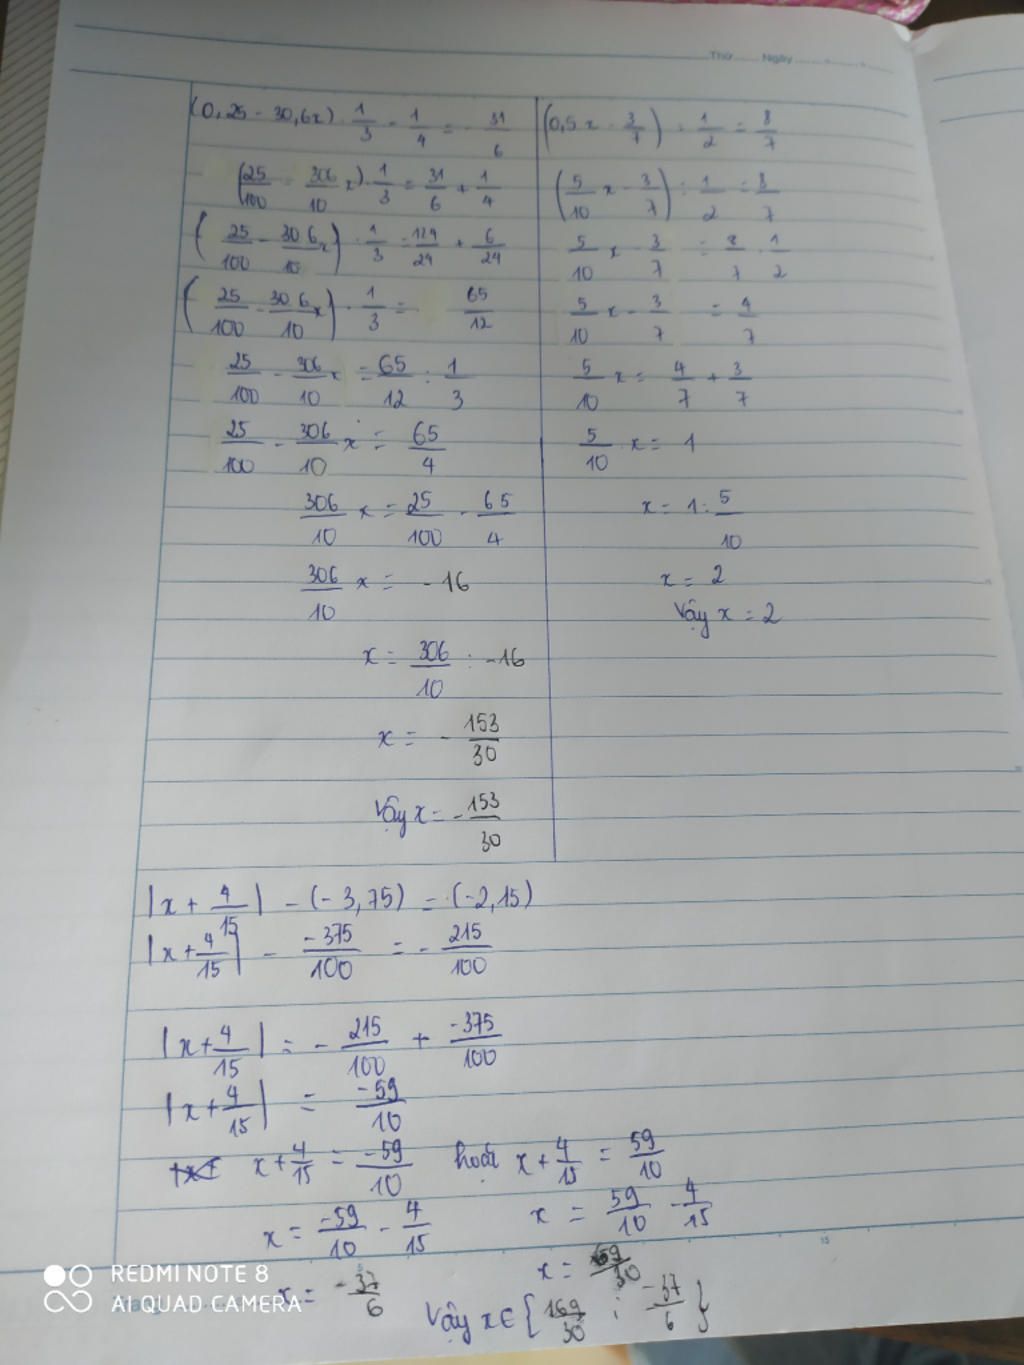 Thứ Ngày
(0,25 - 30,6x) · 1/3 - 1/4 = - 31/6
(25/100 - 306/10 x) · 1/3 = 31/6 + 1/4
(25/100 - 306/10 x) · 1/3 = 124/24 + 6/24
(25/100 - 306/10 x) · 1/3 = 65/12
25/100 - 306/10 x = 65/12 : 1/3
25/100 - 306/10 x = 65/4
306/10 x = 25/100 - 65/4
306/10 x = -16
x = 306/10 : -16
x = - 153/30
Vậy x = - 153/30
(0,5x - 3/7) : 1/2 = 8/7
(5/10 x - 3/7) : 1/2 = 8/7
5/10 x - 3/7 = 8/7 · 1/2
5/10 x - 3/7 = 4/7
5/10 x = 4/7 + 3/7
5/10 x = 1
x = 1 : 5/10
x = 2
Vậy x = 2
|x + 4/15| - (-3,75) = (-2,15)
|x + 4/15| - -375/100 = - 215/100
|x + 4/15| = - 215/100 + -375/100
|x + 4/15| = -59/10
x + 4/15 = -59/10 hoặc x + 4/15 = 59/10
x = -59/10 - 4/15 x = 59/10 - 4/15
x = -37/6 x = 169/30
Vậy x ∈ {169/30 ; -37/6}
REDMI NOTE 8
AI QUAD CAMERA